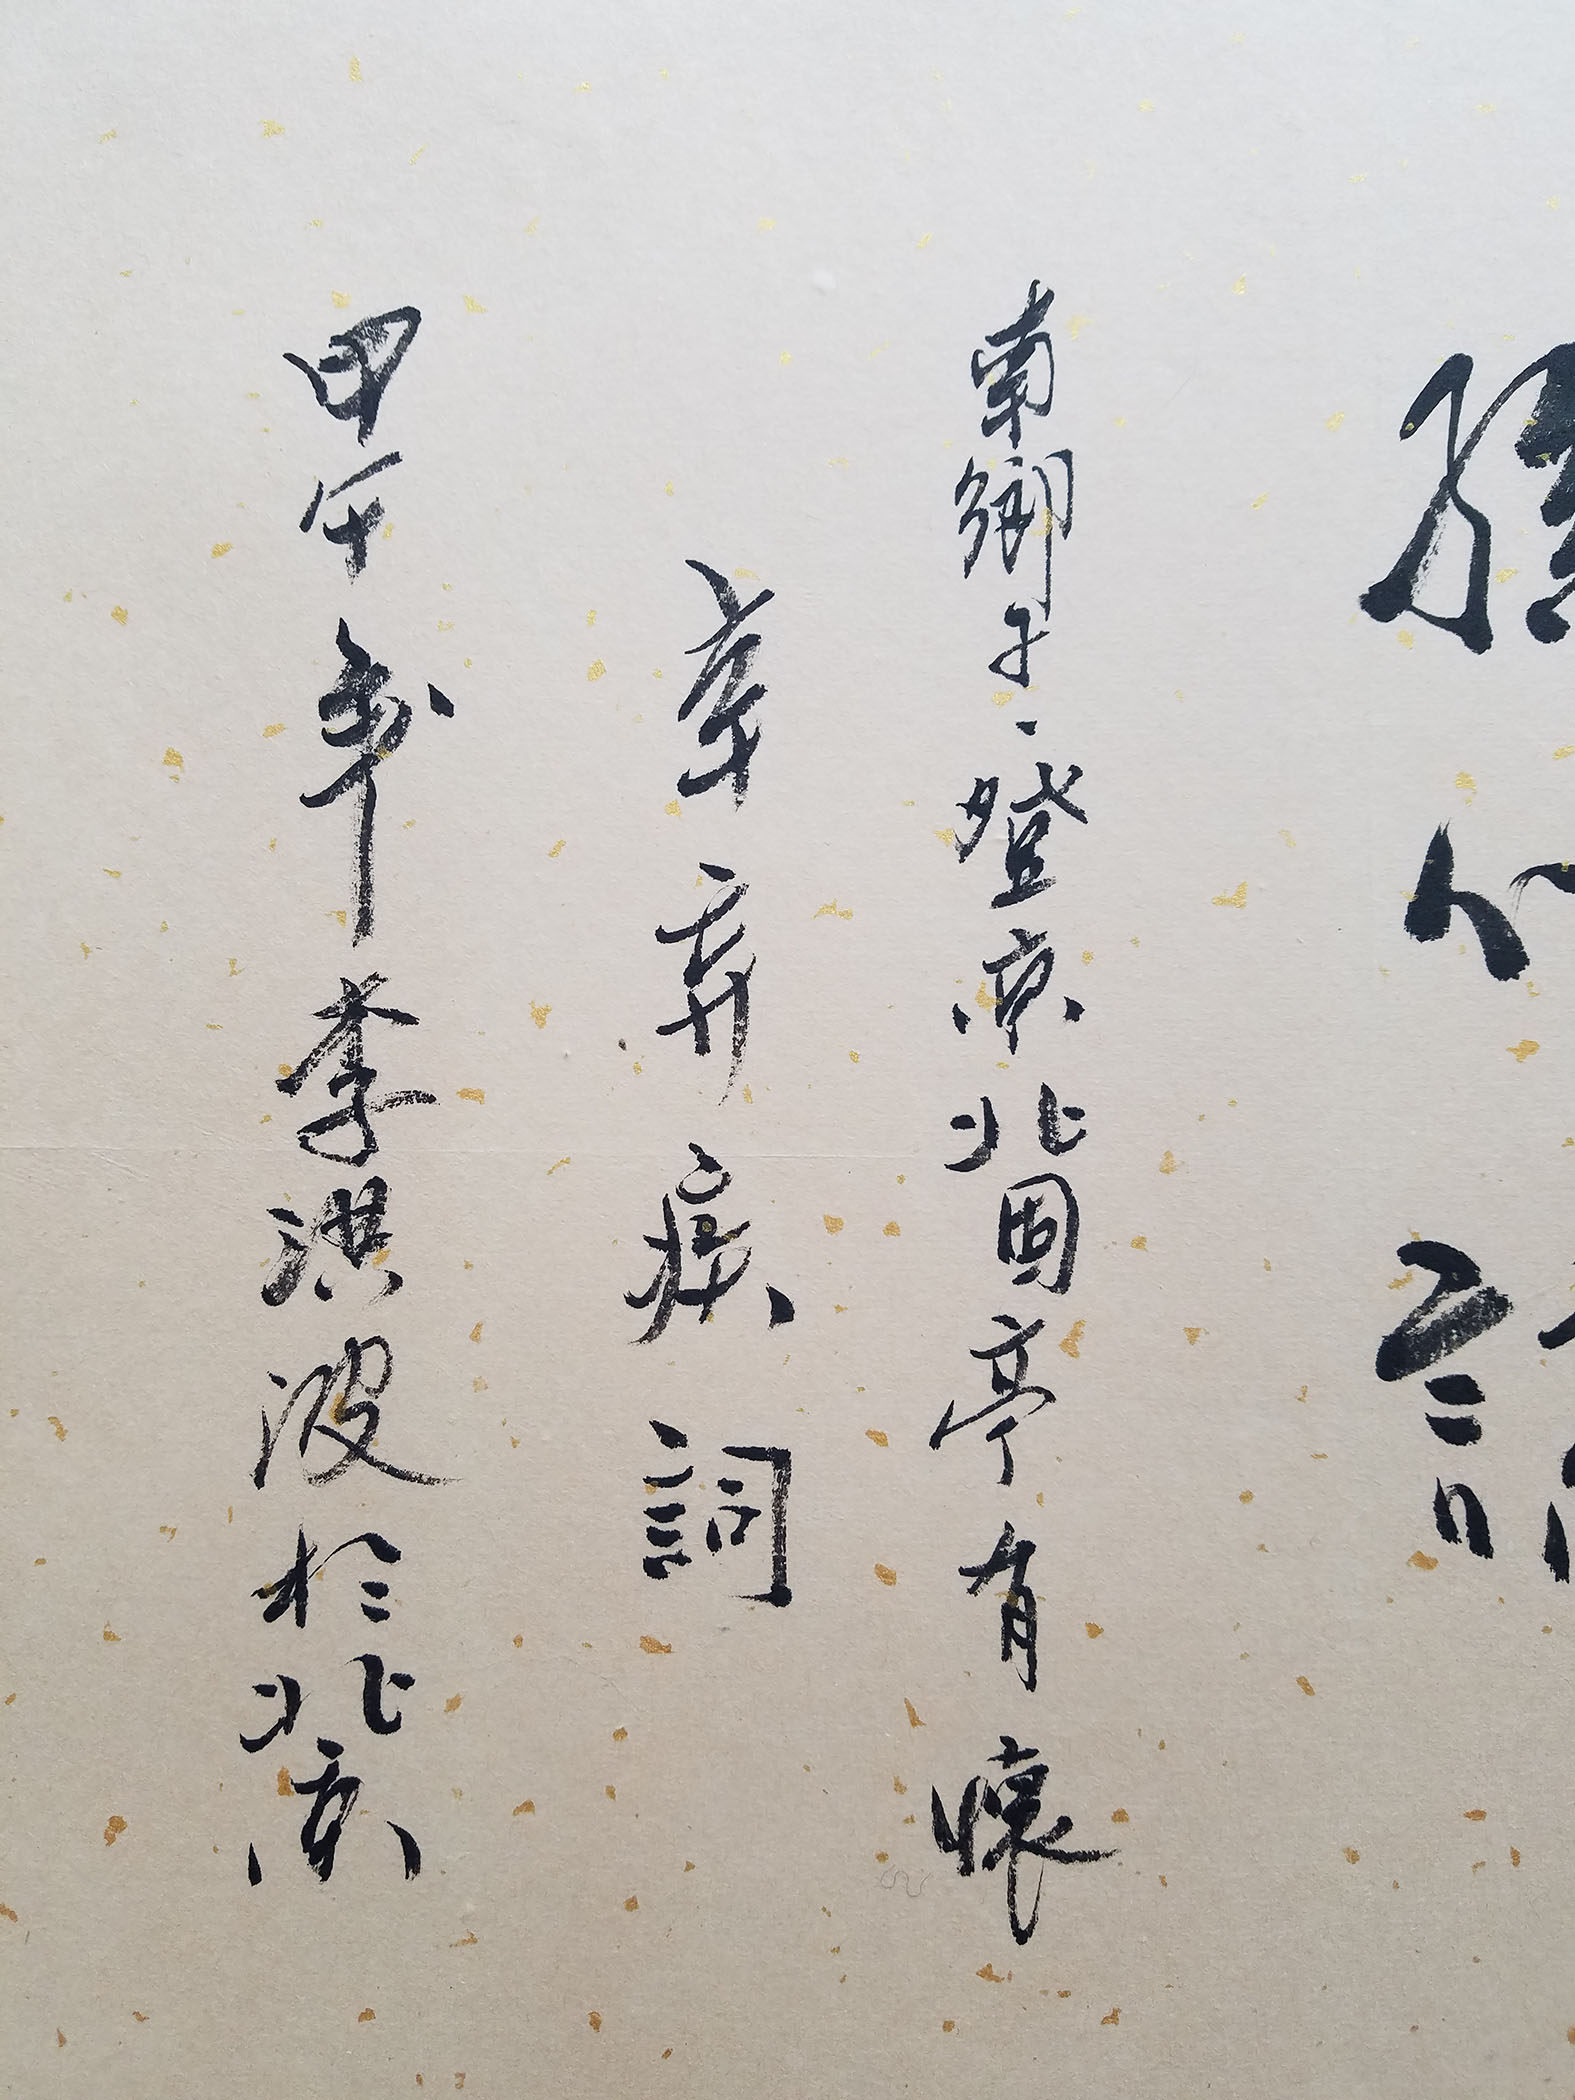 南鄉子、登京北固亭有懷
辛弃疾詞
甲午年李洪波於北京